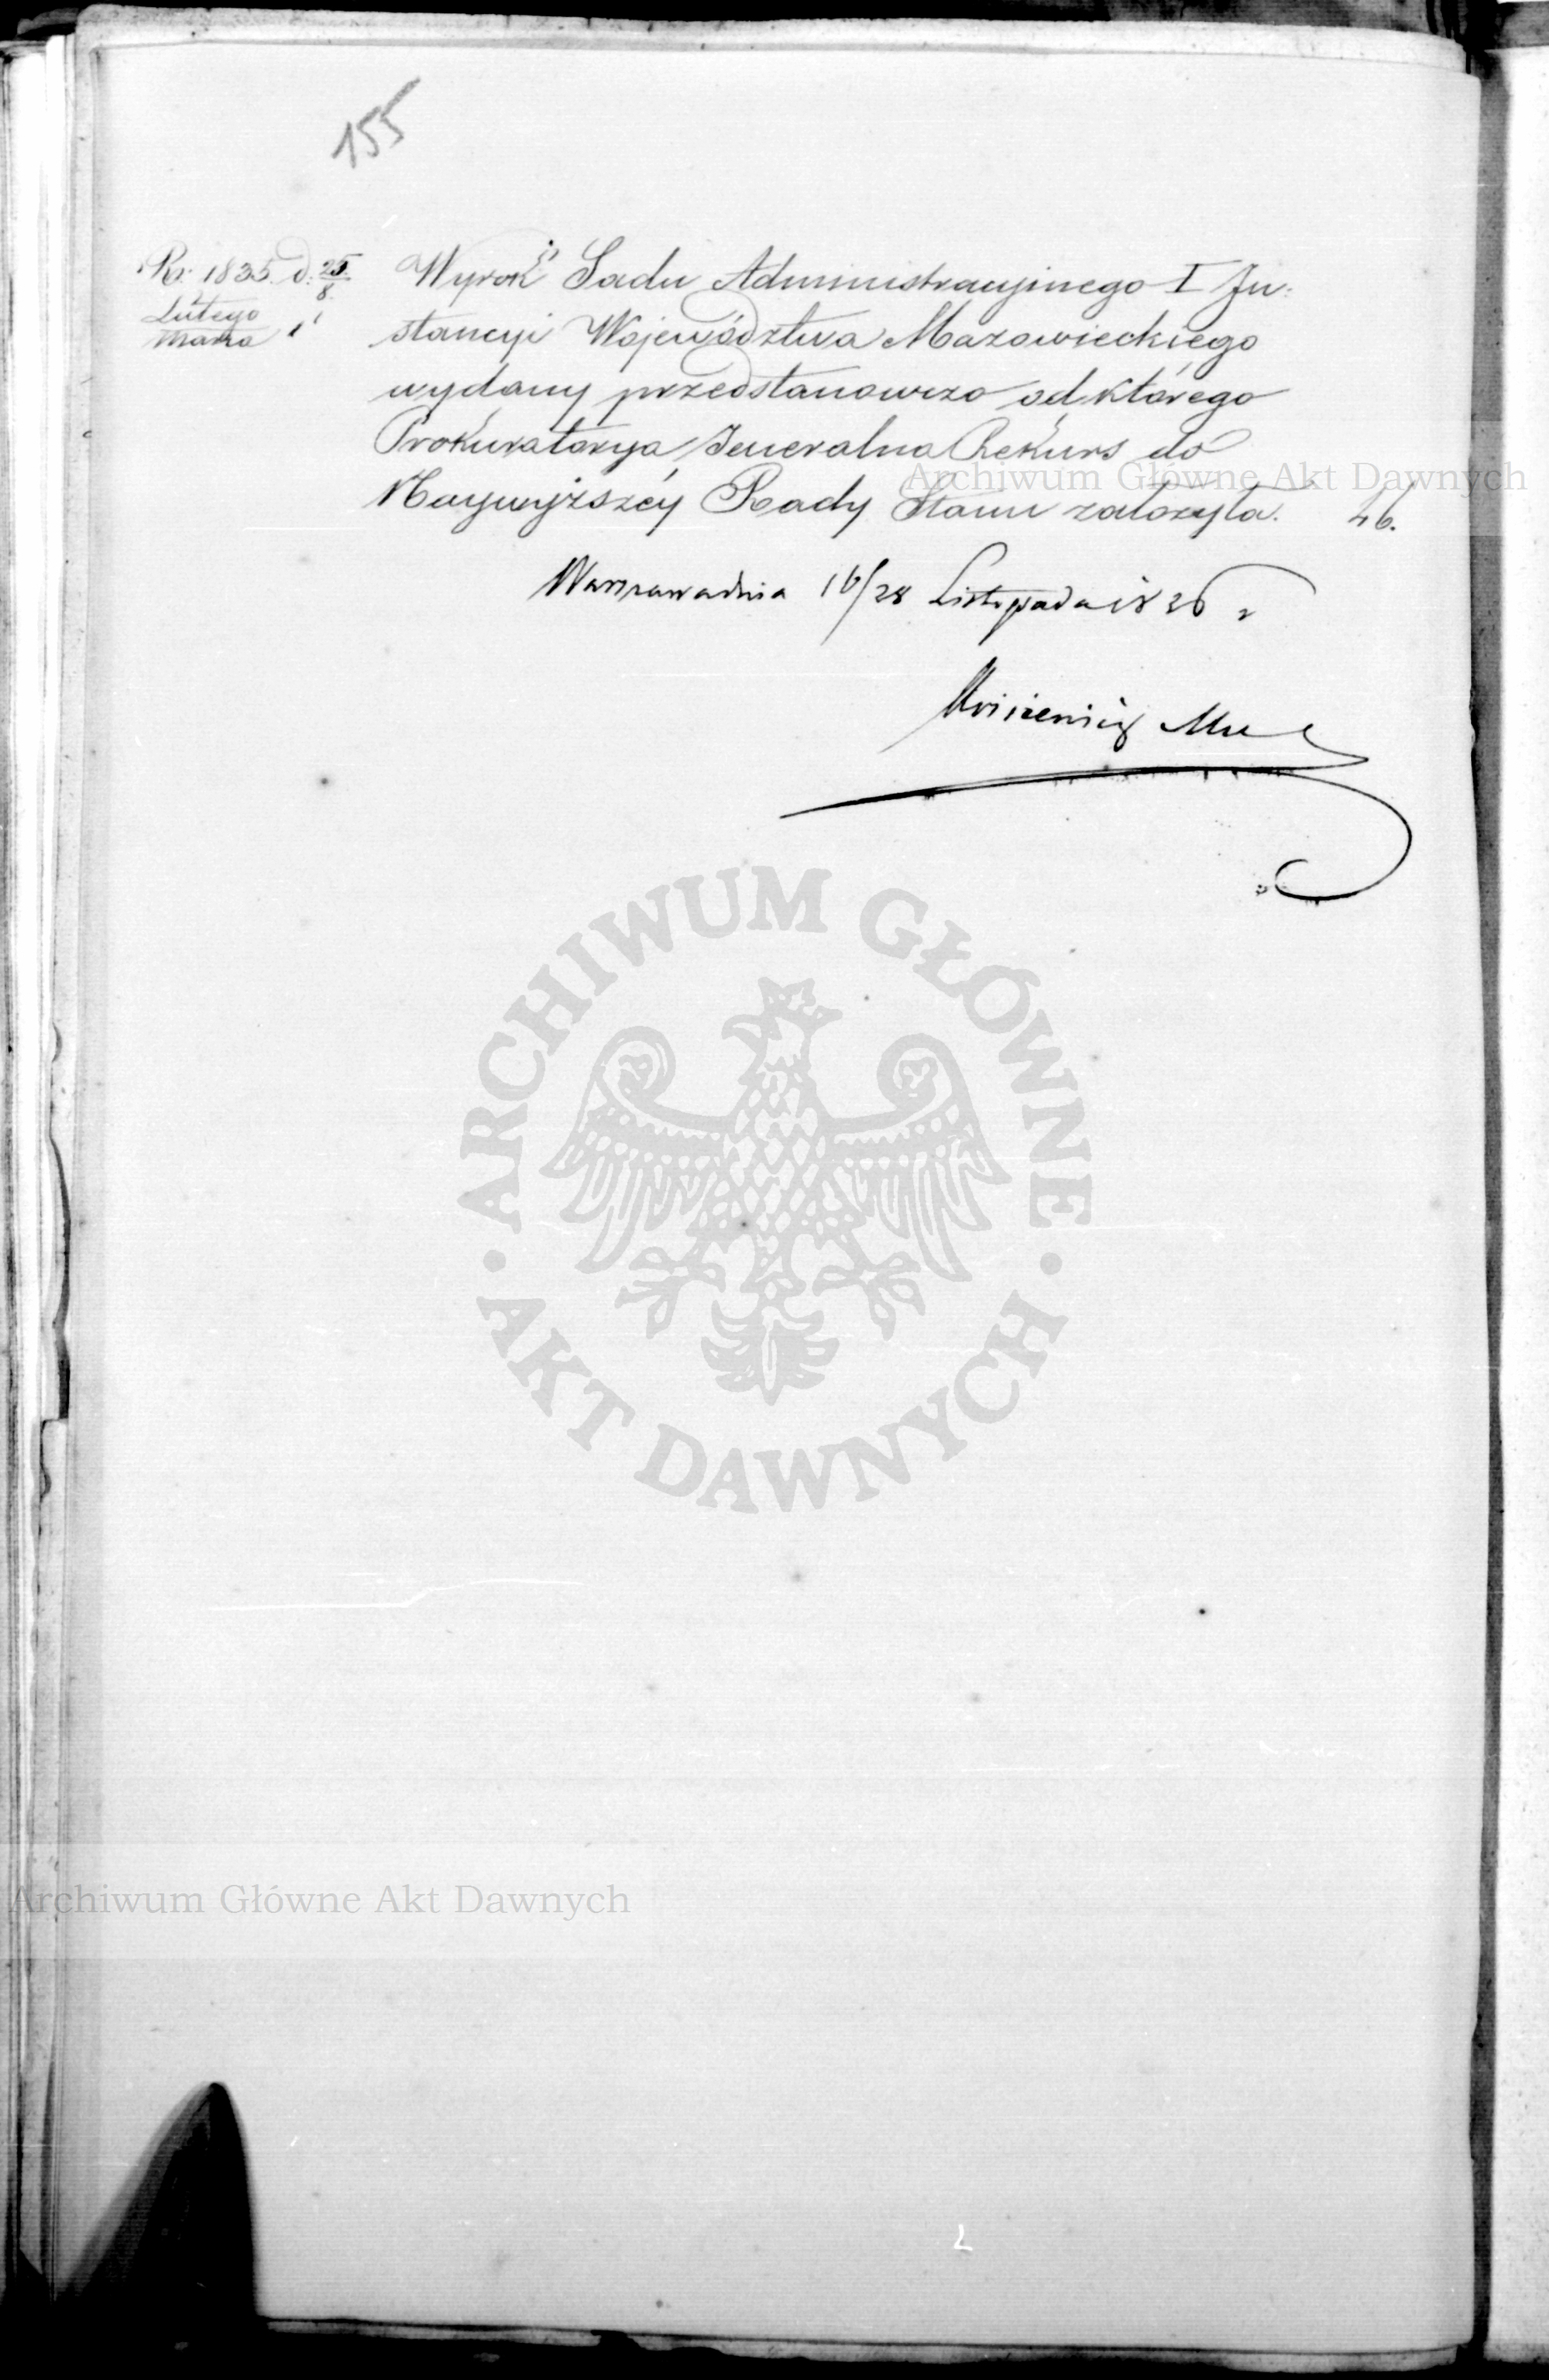 155
Rr. 1835. d. 25/8.
Lutego
Marca
Wyrok Sadu Administracyjnego I Jn:
stancyi Województwa Mazowieckiego
wydany przedstanowczo od którego
Prokuratorya Jeneralna Rekurs do
Naywyższéy Rady Stanu założyła. 46.
Warszawa dnia 16/28 Listopada 1836 r
Archiwum Główne Akt Dawnych
ARCHIWUM GŁÓWNE
AKT DAWNYCH
Archiwum Główne Akt Dawnych